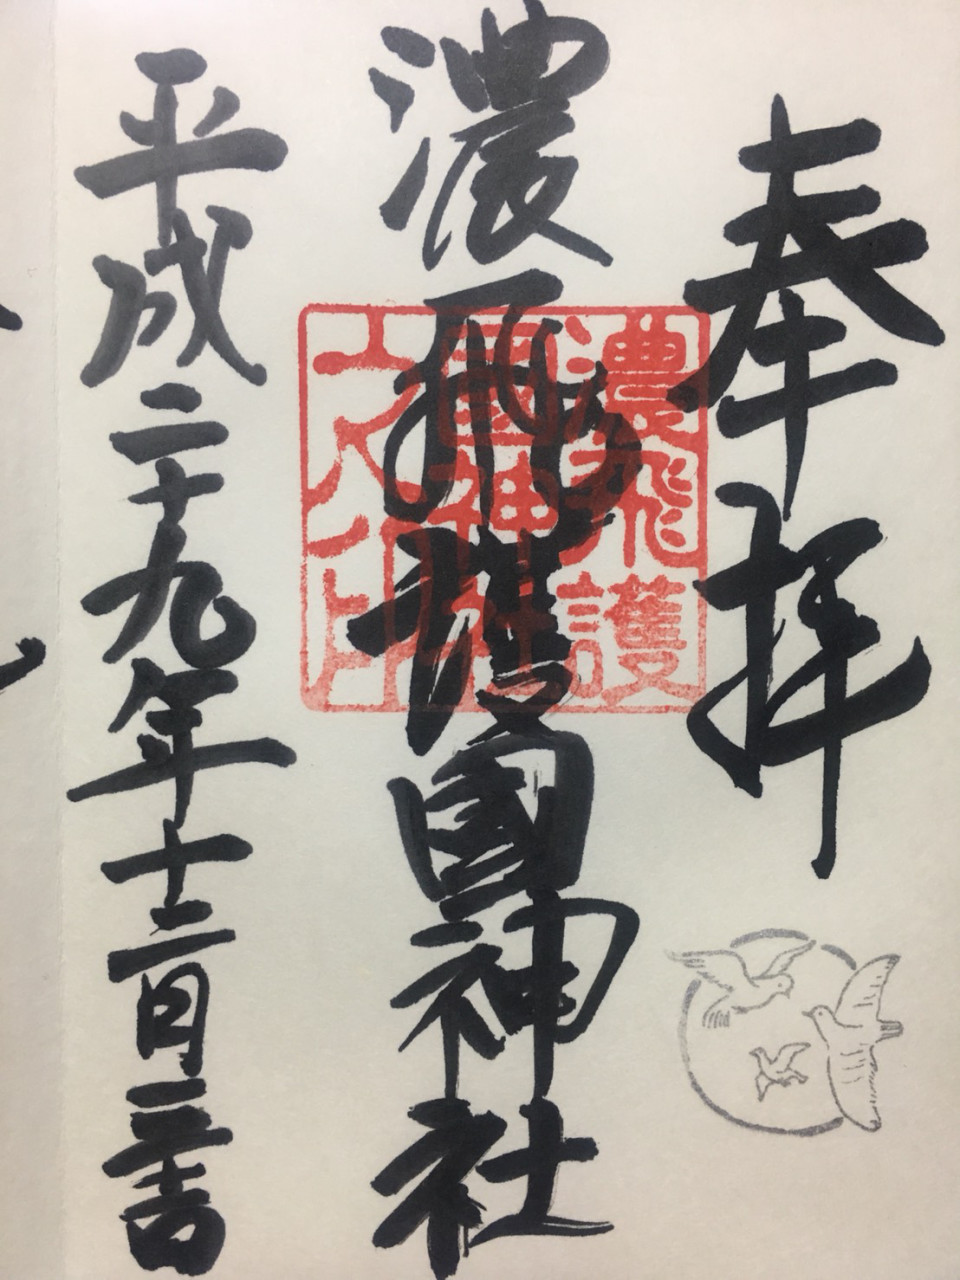 奉拝
濃飛護國神社
濃飛護
國神社
之印
平成二十九年十二月